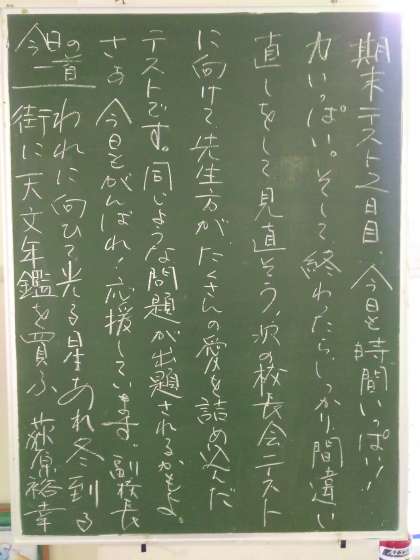 期末テスト2日目、今日も時間いっぱい!
力いっぱい。そして終わったら、しっかり間違い
直しをして見直そう、次の校長会テスト
に向けて、先生方が、たくさんの愛を詰め込んだ
テストです。同じような問題が出題されるかもよ。
さぁ 今日もがんばれ!応援しています。副校長
今日の一首 われに向ひて光る星あれ冬到る
街に天文年鑑を買ふ 荻原裕幸